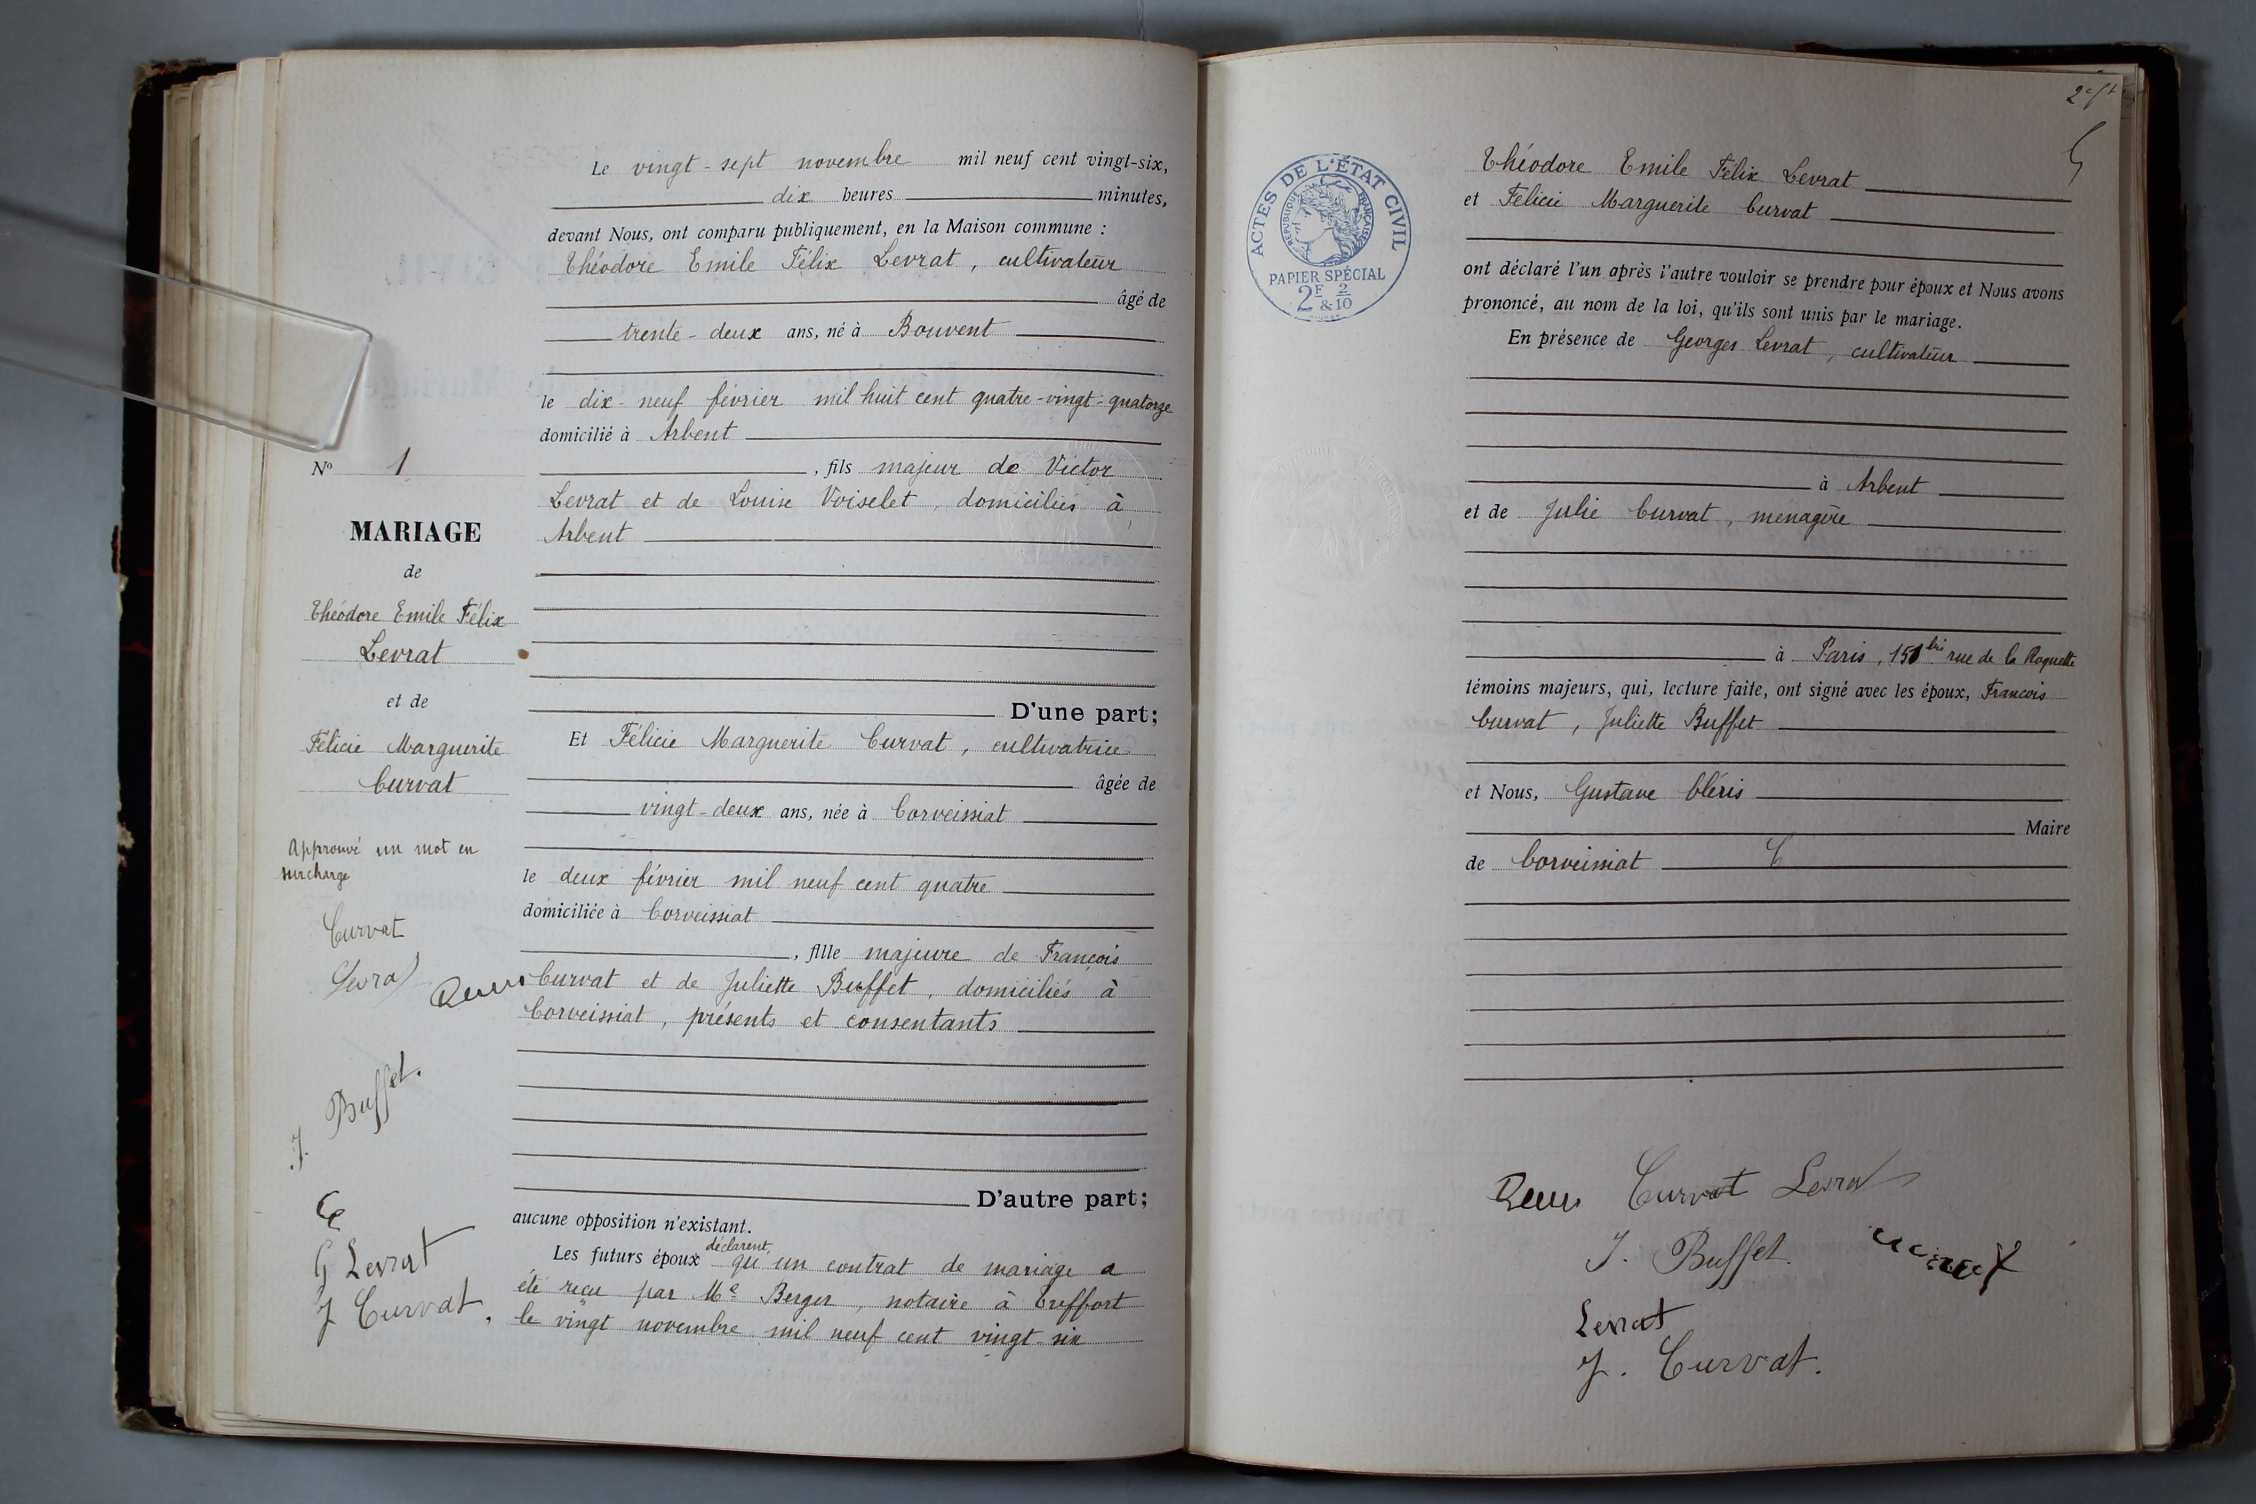 Le vingt-sept novembre mil neuf cent vingt-six,
dix heures minutes,
devant Nous, ont comparu publiquement, en la Maison commune :
Théodore Emile Félix Levrat, cultivateur
âgé de
trente-deux ans, né à Bouvent
le dix-neuf février mil huit cent quatre-vingt-quatorze
domicilié à Arbent
, fils majeur de Victor
Levrat et de Louise Voiselet, domiciliés à
Arbent
D'une part;
Et Félicie Marguerite Curvat, cultivatrice
âgée de
vingt-deux ans, née à Corveissiat
le deux février mil neuf cent quatre
domiciliée à Corveissiat
, fille majeure de François
Curvat et de Juliette Buffet, domiciliés à
Corveissiat, présents et consentants
D'autre part;
aucune opposition n'existant.
Les futurs époux déclarent qu'un contrat de mariage a
été reçu par Me Berger, notaire à Treffort
le vingt novembre mil neuf cent vingt-six
No 1
MARIAGE
de
Théodore Emile Félix
Levrat
et de
Félicie Marguerite
Curvat
Approuvé un mot en
surcharge
Curvat
Levrat
J. Buffet.
G Levrat
J Curvat.
ACTES DE L'ÉTAT CIVIL
RÉPUBLIQUE FRANÇAISE
PAPIER SPÉCIAL
2F & 2/10
Théodore Emile Félix Levrat
et Félicie Marguerite Curvat
ont déclaré l'un après l'autre vouloir se prendre pour époux et Nous avons
prononcé, au nom de la loi, qu'ils sont unis par le mariage.
En présence de Georges Levrat, cultivateur
à Arbent
et de Julie Curvat, ménagère
à Paris, 151 bis rue de la Roquette
témoins majeurs, qui, lecture faite, ont signé avec les époux, Francois
Curvat, Juliette Buffet
et Nous, Gustave Cléris
Maire
de Corveissiat
Curvat Levrat
J. Buffet.
Levrat
J. Curvat.